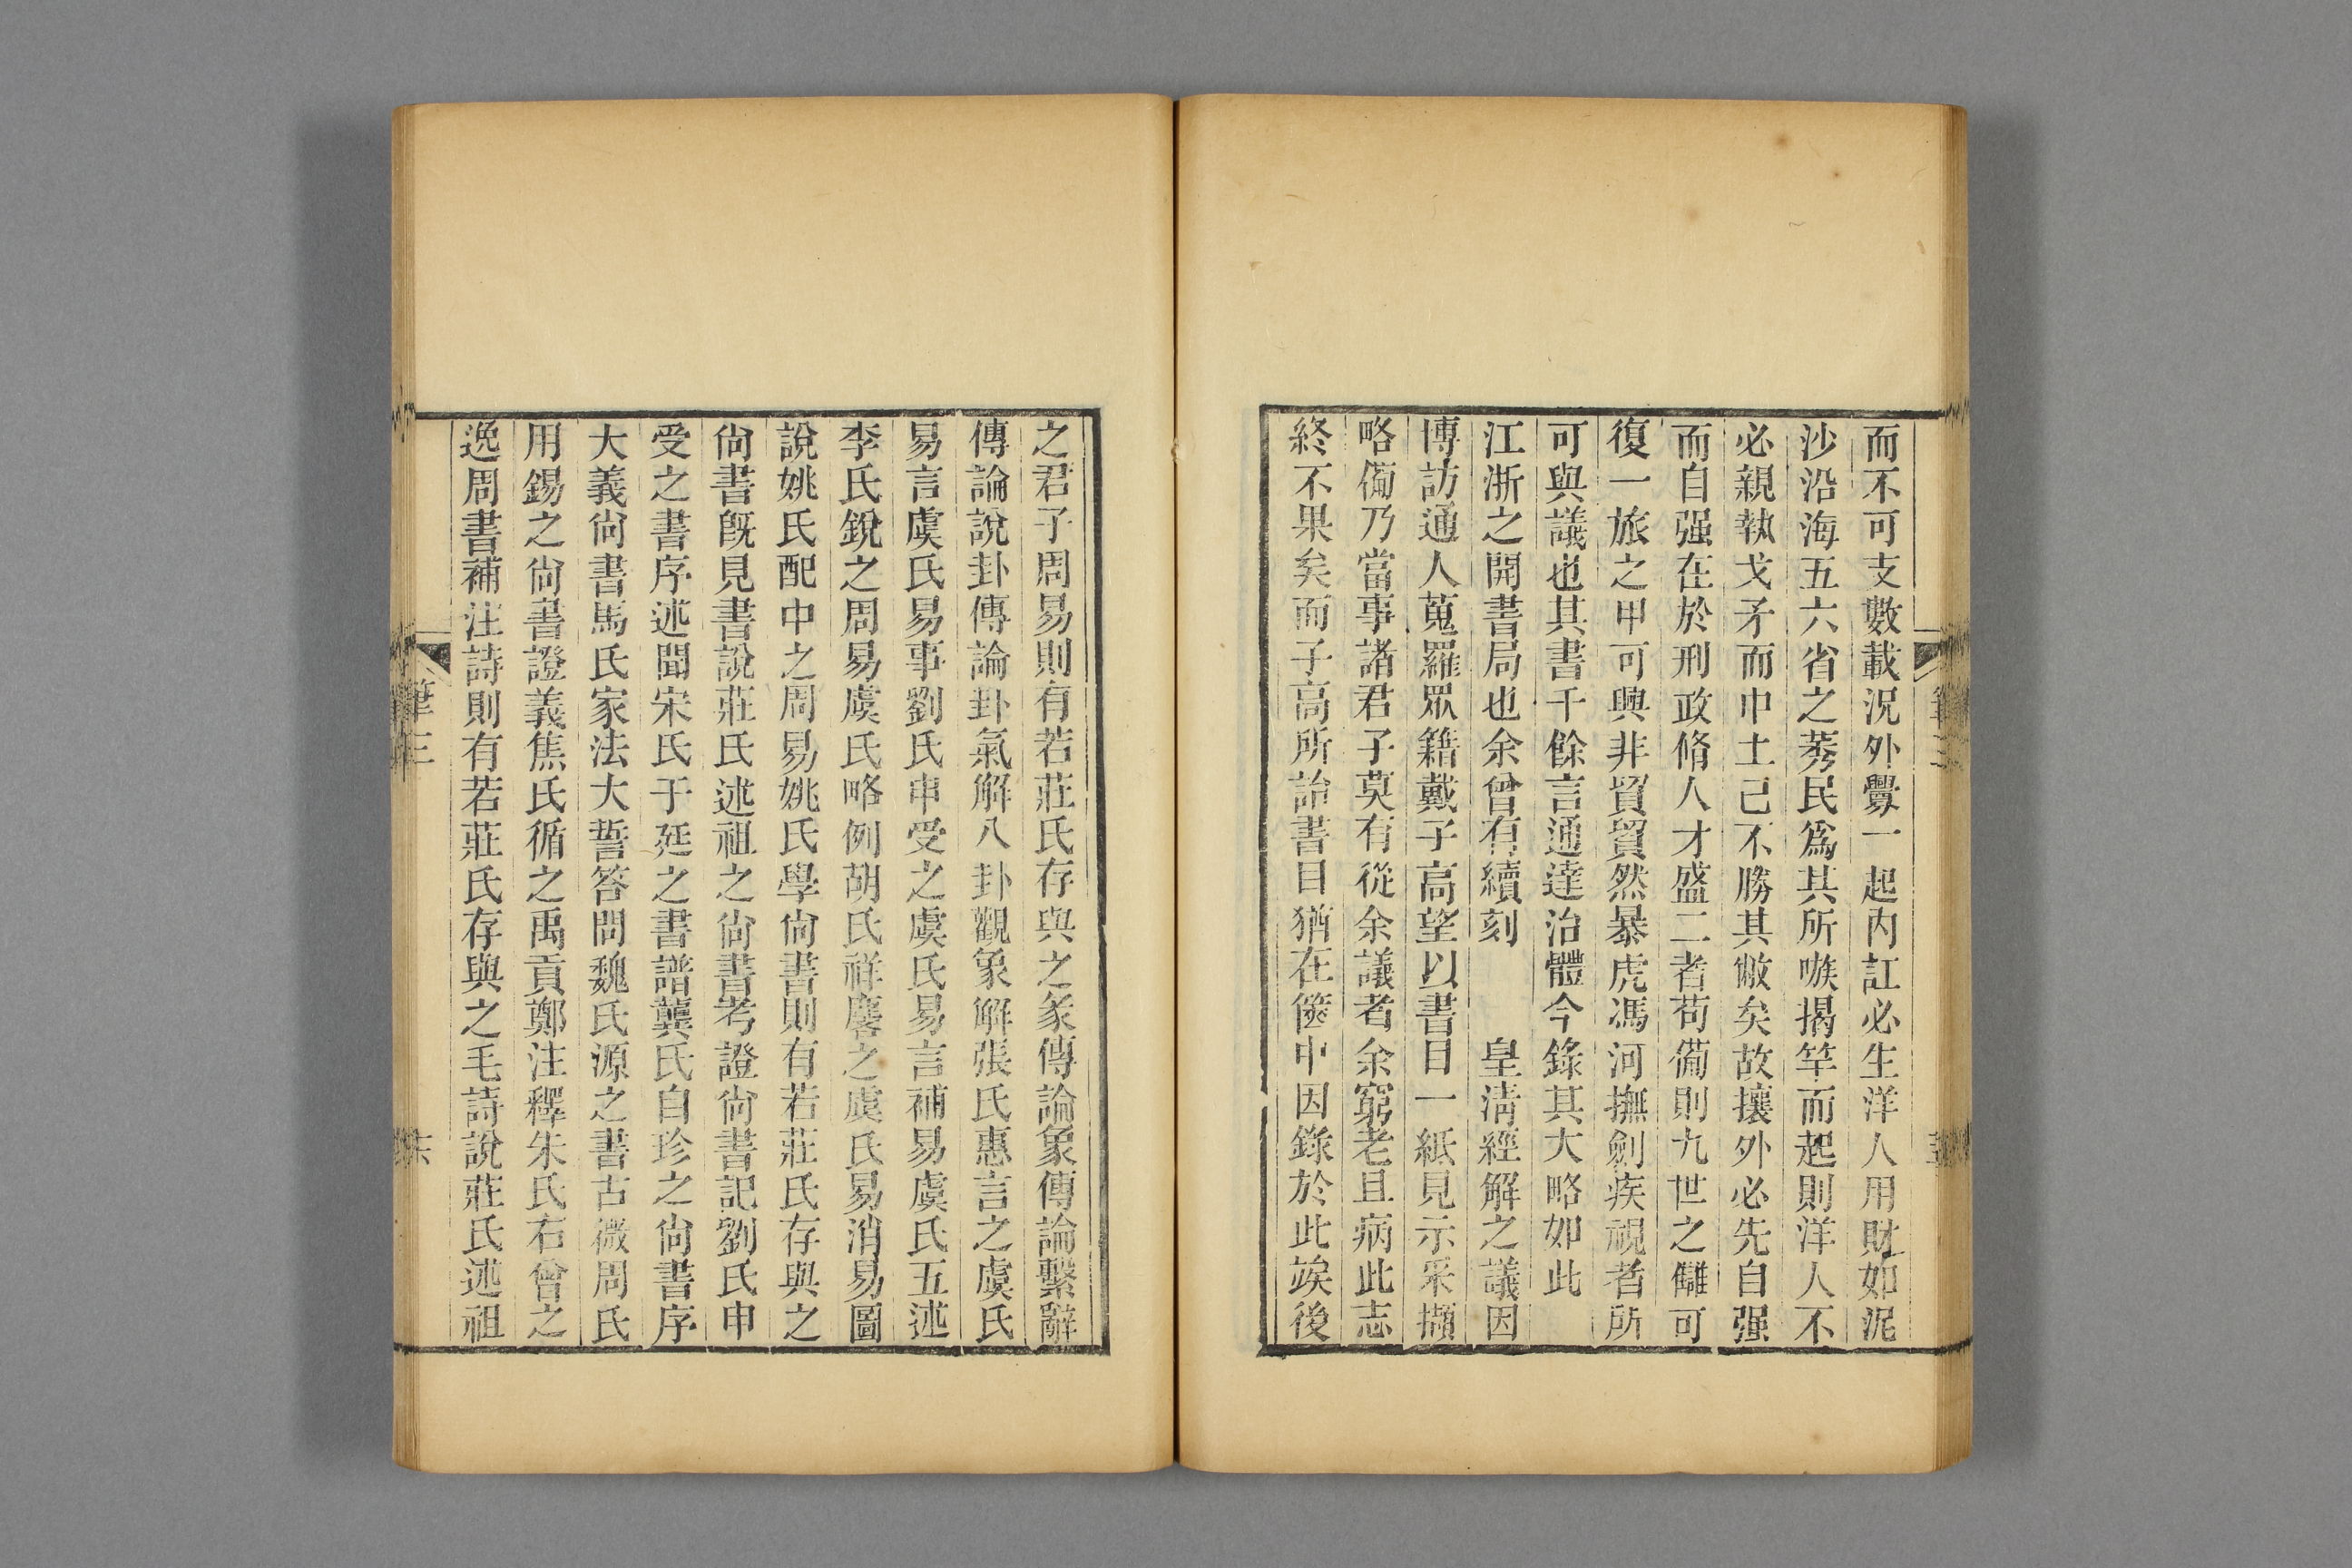 而不可支數載況外釁一起內訌必生洋人用財如泥
沙沿海五六省之莠民爲其所嗾揭竿而起則洋人不
必親執戈矛而中土己不勝其敝矣故攘外必先自强
而自强在於刑政脩人才盛二者苟備則九世之讎可
復一旅之甲可興非貿貿然暴虎馮河撫劍疾視者所
可與議也其書千餘言通達治體今錄其大略如此
江浙之開書局也余曾有續刻 皇淸經解之議因
博訪通人蒐羅眾籍戴子高望以書目一紙見示采擷
略備乃當事諸君子莫有從余議者余窮老且病此志
終不果矣而子高所詒書目猶在篋中因錄於此竢後
之君子周易則有若莊氏存與之彖傳論象傳論繫辭
傳論說卦傳論卦氣解八卦觀象解張氏惠言之虞氏
易言虞氏易事劉氏申受之虞氏易言補易虞氏五述
李氏銳之周易虞氏略例胡氏祥麐之虞氏易消易圖
說姚氏配中之周易姚氏學尙書則有若莊氏存與之
尙書旣見書說莊氏述祖之尙書考證尙書記劉氏申
受之書序述聞宋氏于延之書譜龔氏自珍之尙書序
大義尙書馬氏家法大誓答問魏氏源之書古微周氏
用錫之尙書證義焦氏循之禹貢鄭注釋朱氏右曾之
逸周書補注詩則有若莊氏存與之毛詩說莊氏述祖
筆三